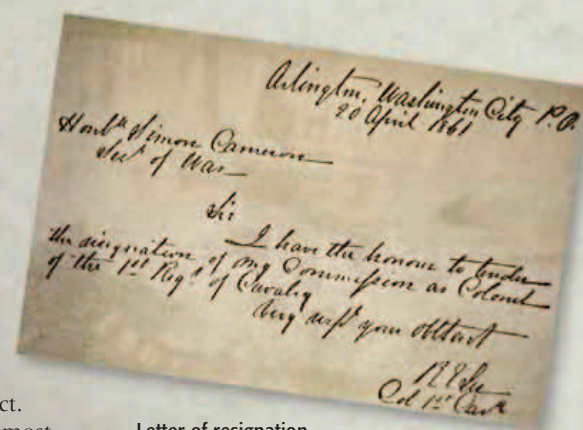 Arlington, Washington City P.O.
20 April 1861
Honble Simon Cameron
Secy of War
Sir
I have the honour to tender
the resignation of my Commission as Colonel
of the 1st Regt of Cavalry
Very respy your obt servt
R E Lee
Col 1st Cavy
ct.
most
Letter of resignation